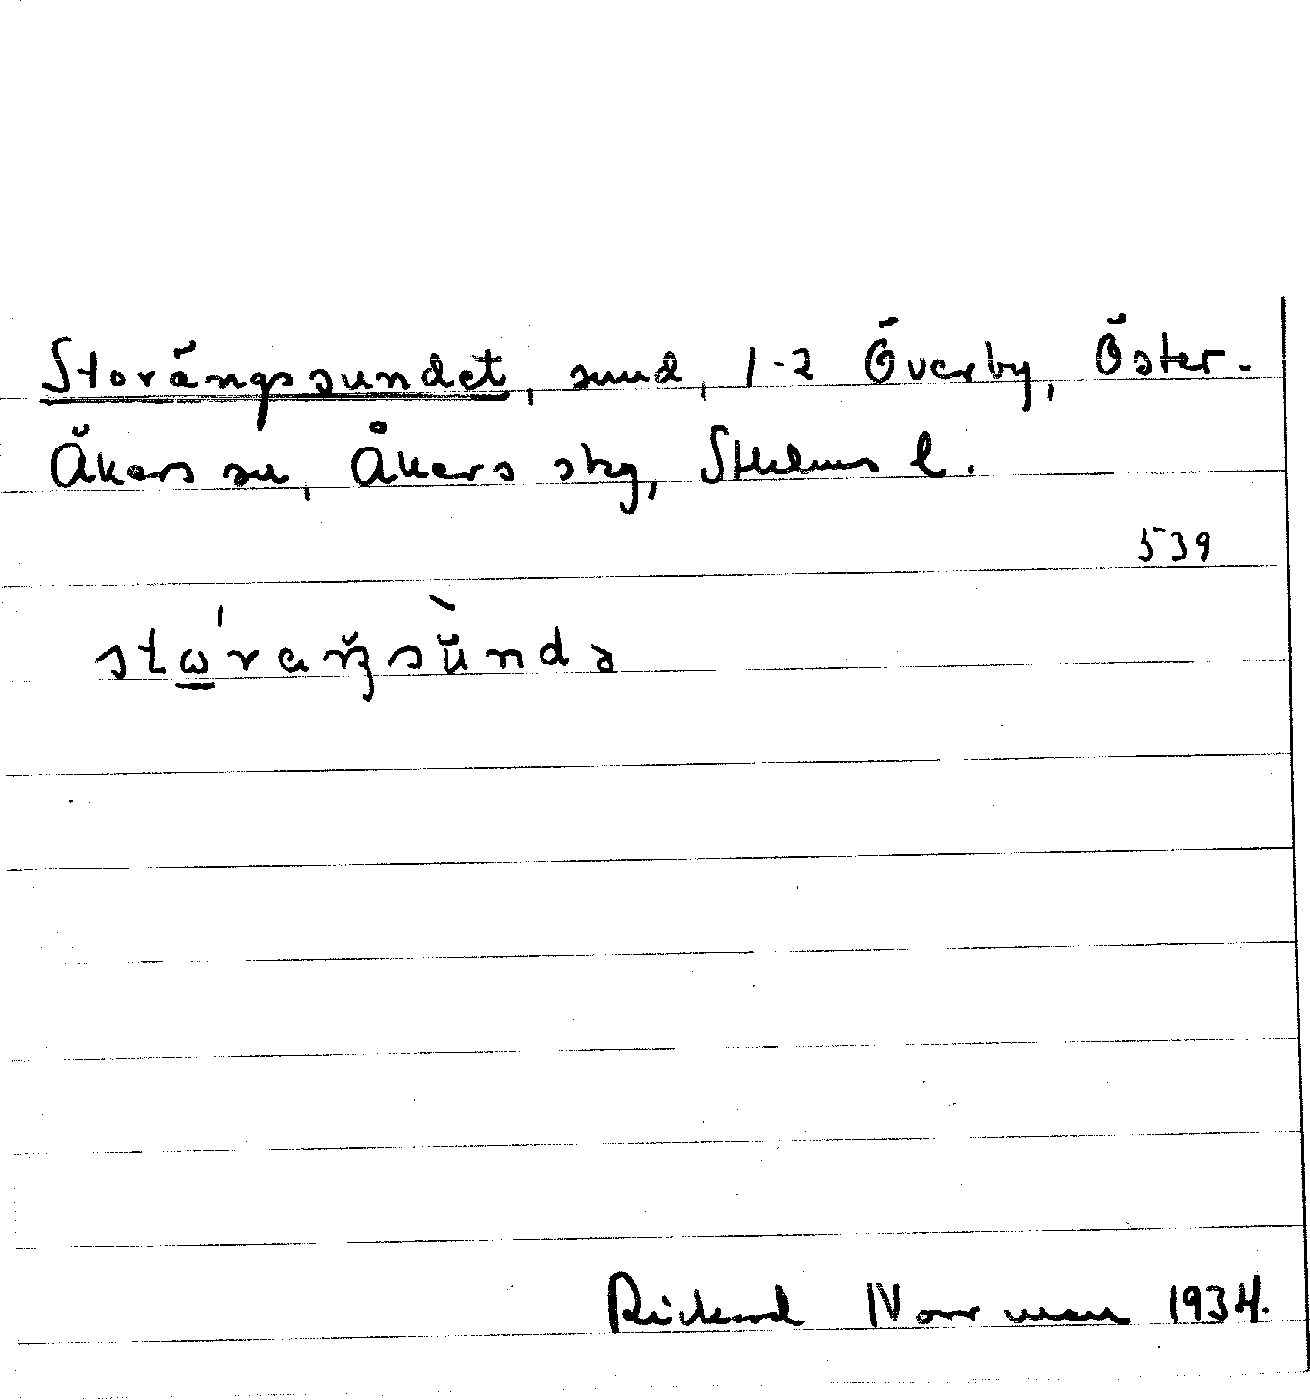 Storängssundet, sund, 1-2 Överby, Öster-
Åkers sn, Åkers skg, Sthlms l.
539
Rickard Norrman 1934.